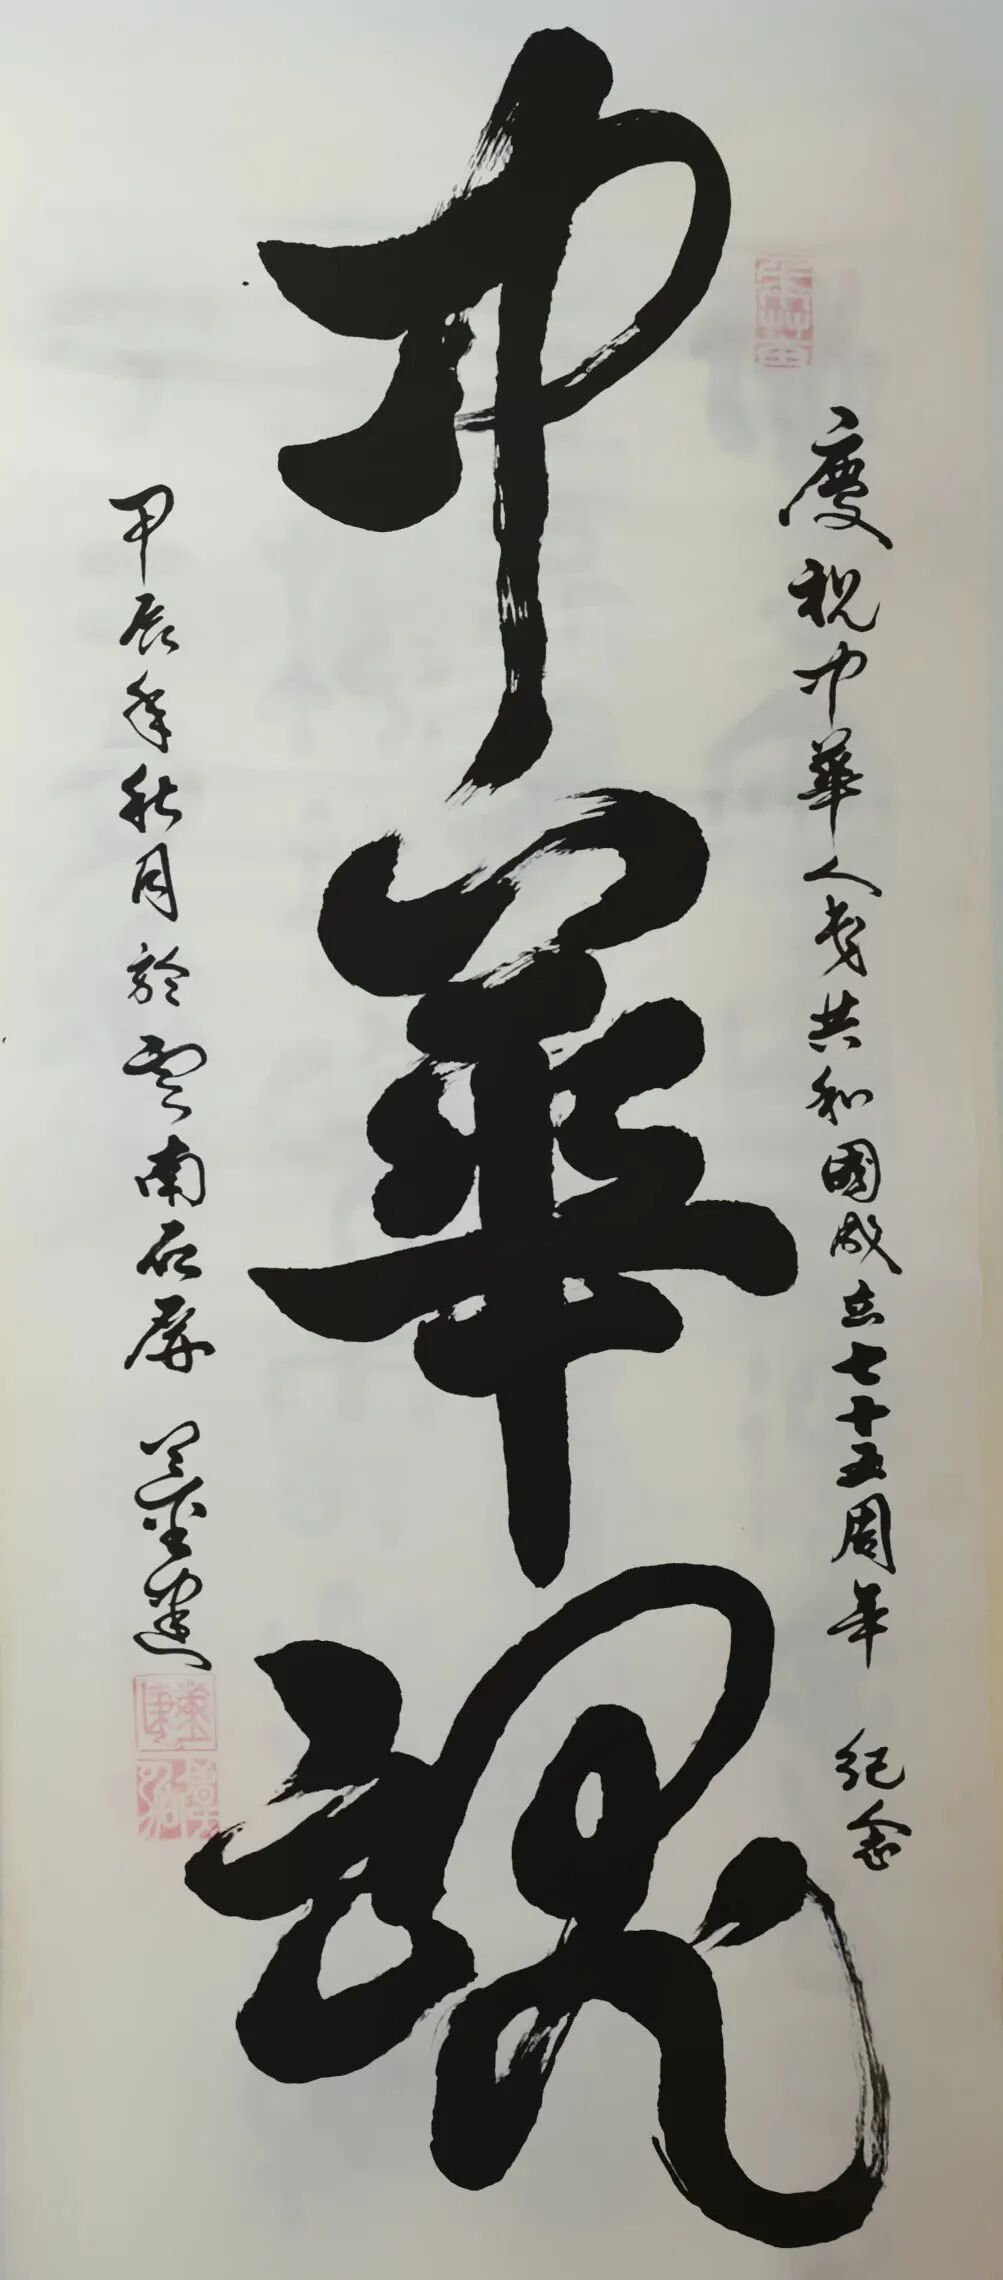 慶祝中華人民共和國成立七十五周年 紀念
中華魂
甲辰年秋月於雲南石屏